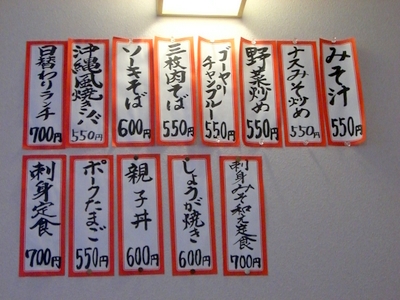 みそ汁
550円
ナスみそ炒め
550円
野菜炒め
550円
ゴーヤー
チャンプルー
550円
三枚肉そば
550円
ソーキそば
600円
沖縄風焼きソバ
550円
日替わりランチ
700円
刺身みそ和え定食
700円
しょうが焼き
600円
親子丼
600円
ポークたまご
550円
刺身定食
700円